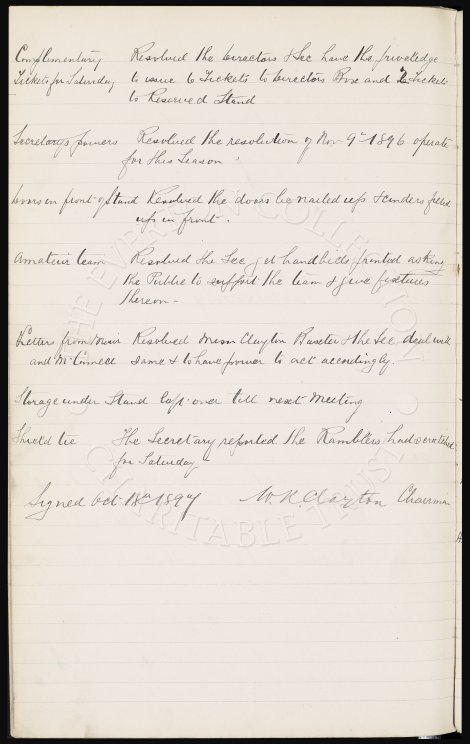 Complimentary Resolved the Directors & Sec have the priveledge
Tickets for Saturday to issue 6 Tickets to Directors Box and 2 Tickets
to Reserved Stand
Secretarys powers Resolved the resolution of Nov 9th 1896 operate
for this Season
Doors in front of Stand Resolved the doors be nailed up & cinders filled
up in front.
Amateur team Resolved the Sec get handbills printed asking
the Public to support the team & give fixtures
thereon -
Letters from Muir Resolved Messrs Clayton Baxter & the Sec deal with
and McConnell same & to have power to act accordingly.
Storage under Stand left over till next Meeting
Shield tie The Secretary reported the Ramblers had scratched
for Saturday
Signed Oct 18th 1897 W. R. Clayton Chairman
THE EVERTON COLLECTION
CHARITABLE TRUST